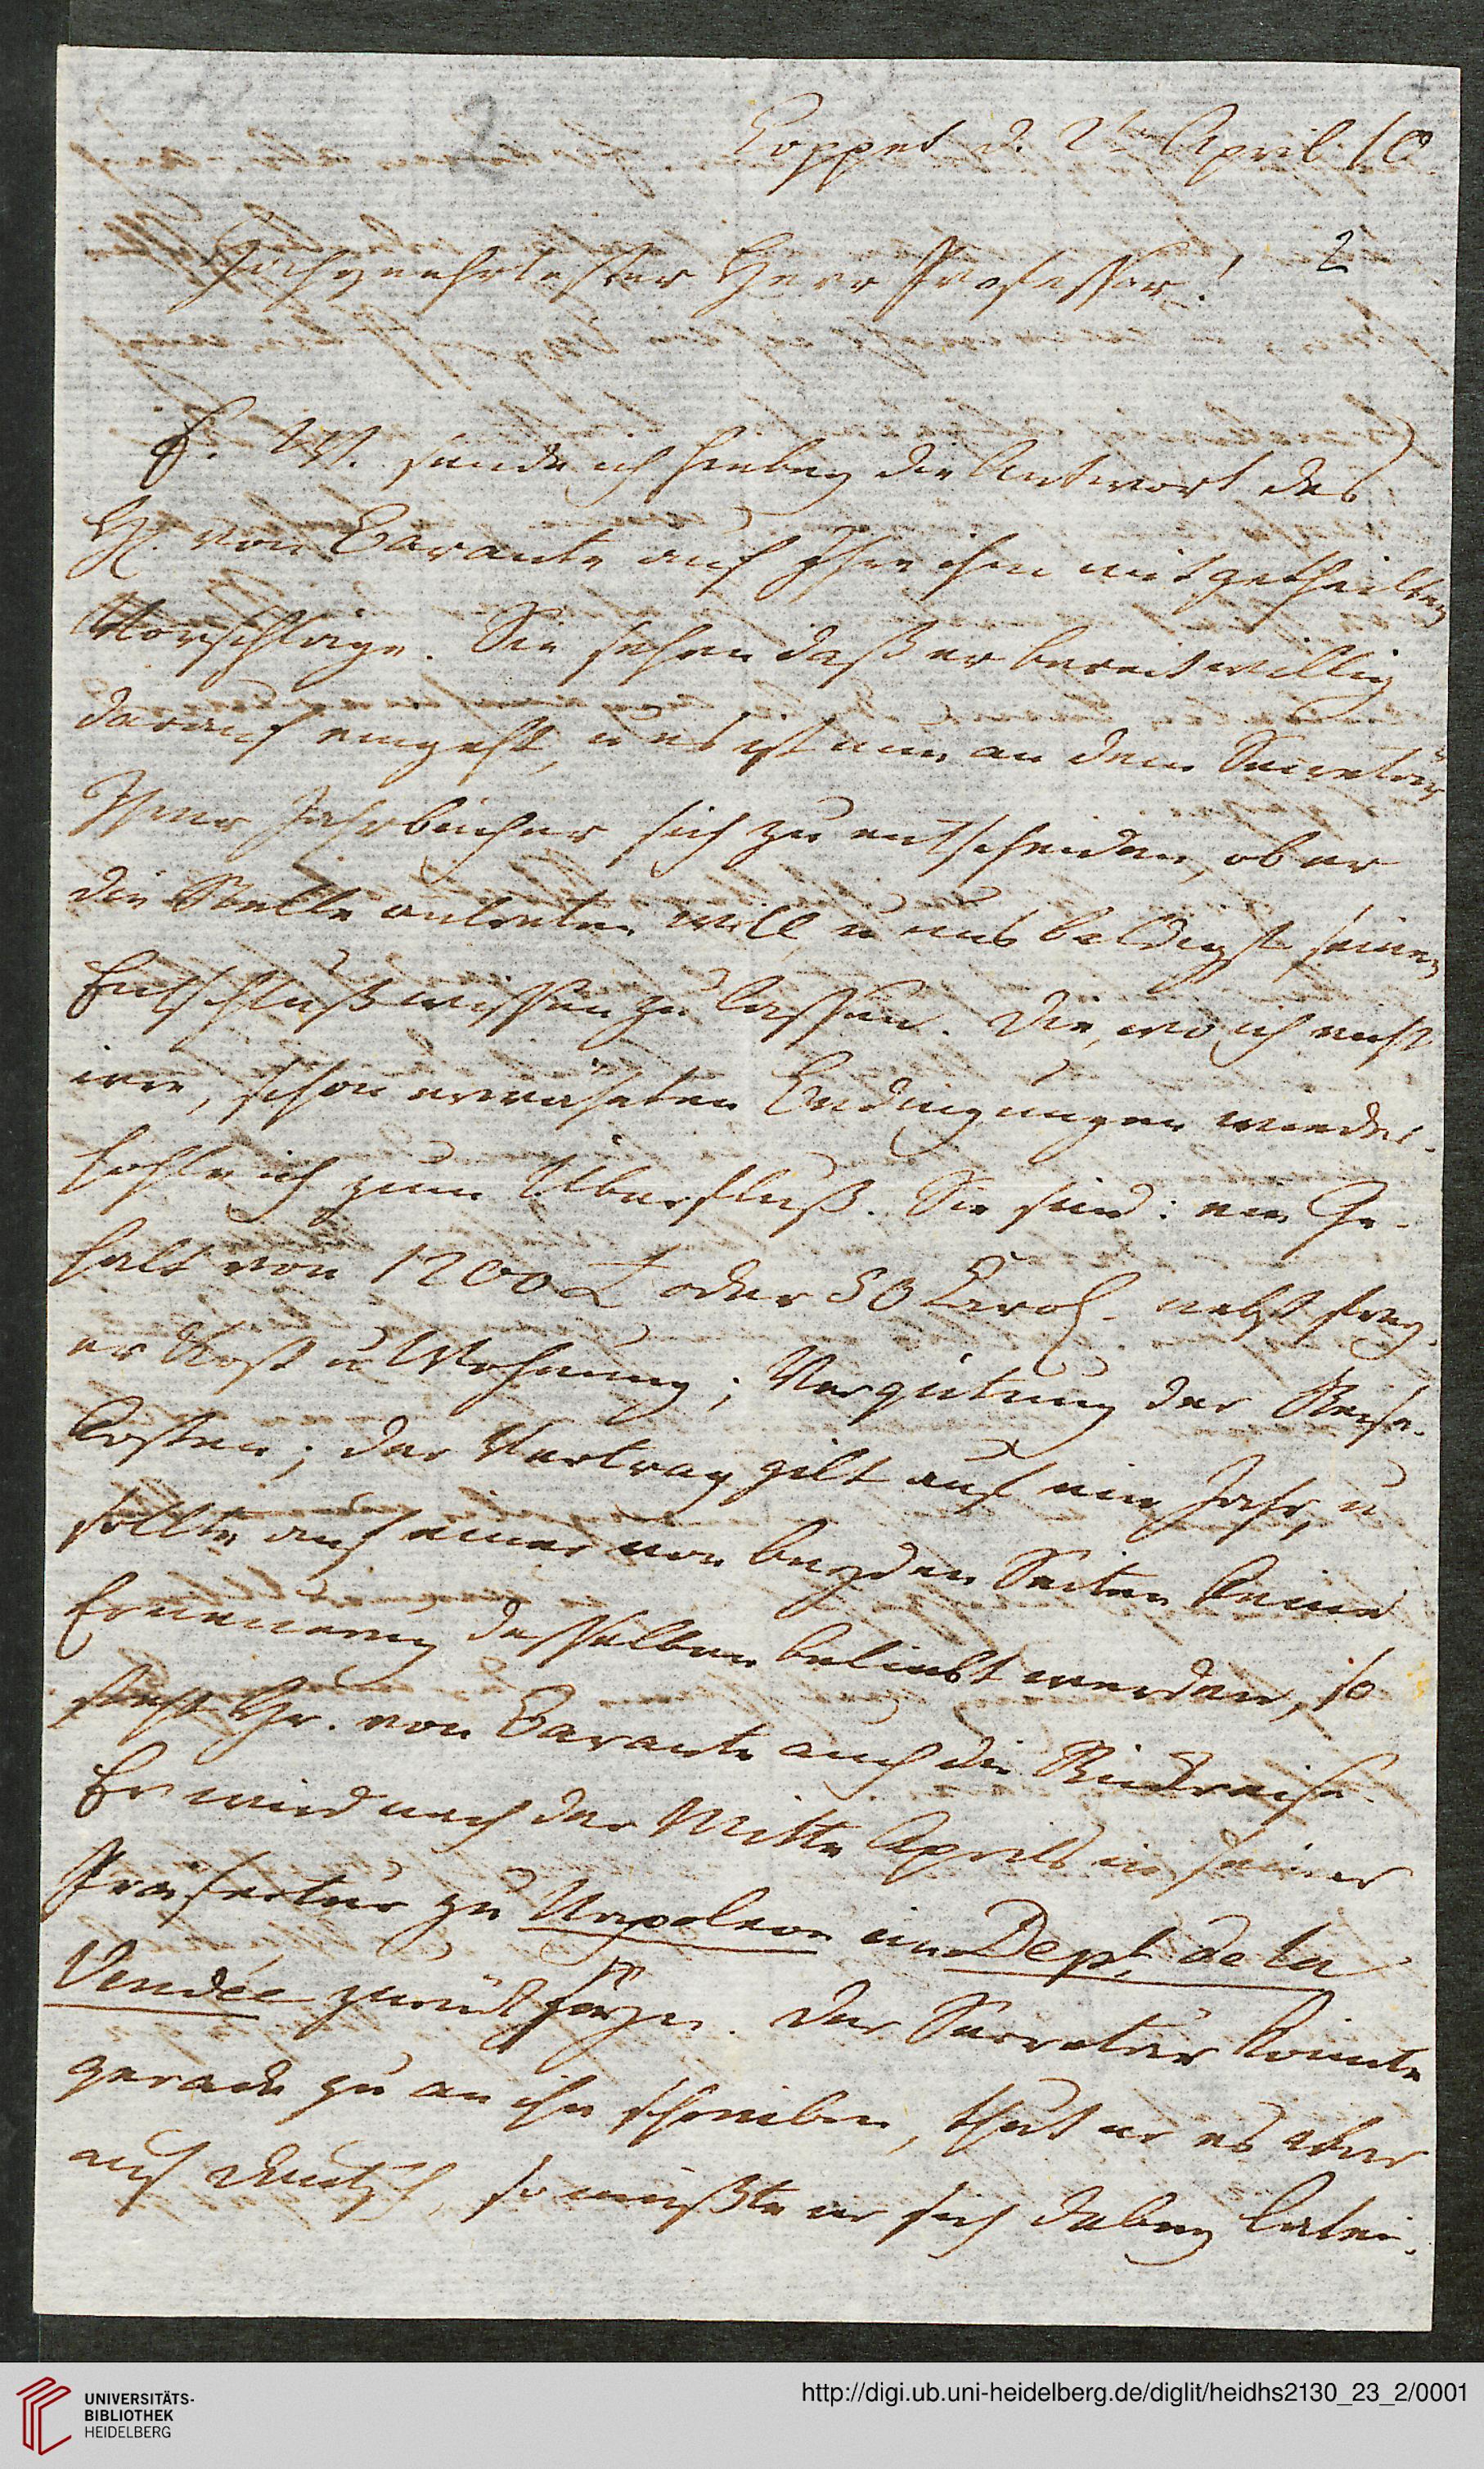 2
Coppet d. 2ten April 10
2
Hochgeehrtester Herr Professor!
E. W. sende ich hiebey die Antwort des
H. von Barante auf Ihre ihm mitgetheilten
Vorschläge. Sie sehen daß er bereitwillig
darauf eingeht, u es ist nun an dem Secretär
Ihrer Jahrbücher sich zu entscheiden, ob er
die Stelle antreten will, u uns baldigst seinen
Entschluß wissen zu lassen. Die, wo ich nicht
irre, schon erwähnten Bedingungen wieder-
hohle ich zum Überfluß. Sie sind: ein Ge-
halt von 1200 L oder 50 Carol. nebst frey-
er Kost u Wohnung; Vergütung der Reise-
kosten; der Vertrag gilt auf ein Jahr, u
sollte auf einer von beyden Seiten keine
Erneuerung desselben beliebt werden, so
steht Hr. von Barante auch die Rückreise.
Er wird nach der Mitte Aprils in seiner
Präfectur zu Napoleon im Dept. de la
Vendée zurück seyn. Der Secretär könnte
gerade zu an ihn schreiben, thut er es aber
auf deutsch, so müßte er sich dabey latei-
UNIVERSITÄTS-
BIBLIOTHEK
HEIDELBERG
http://digi.ub.uni-heidelberg.de/diglit/heidhs2130_23_2/0001